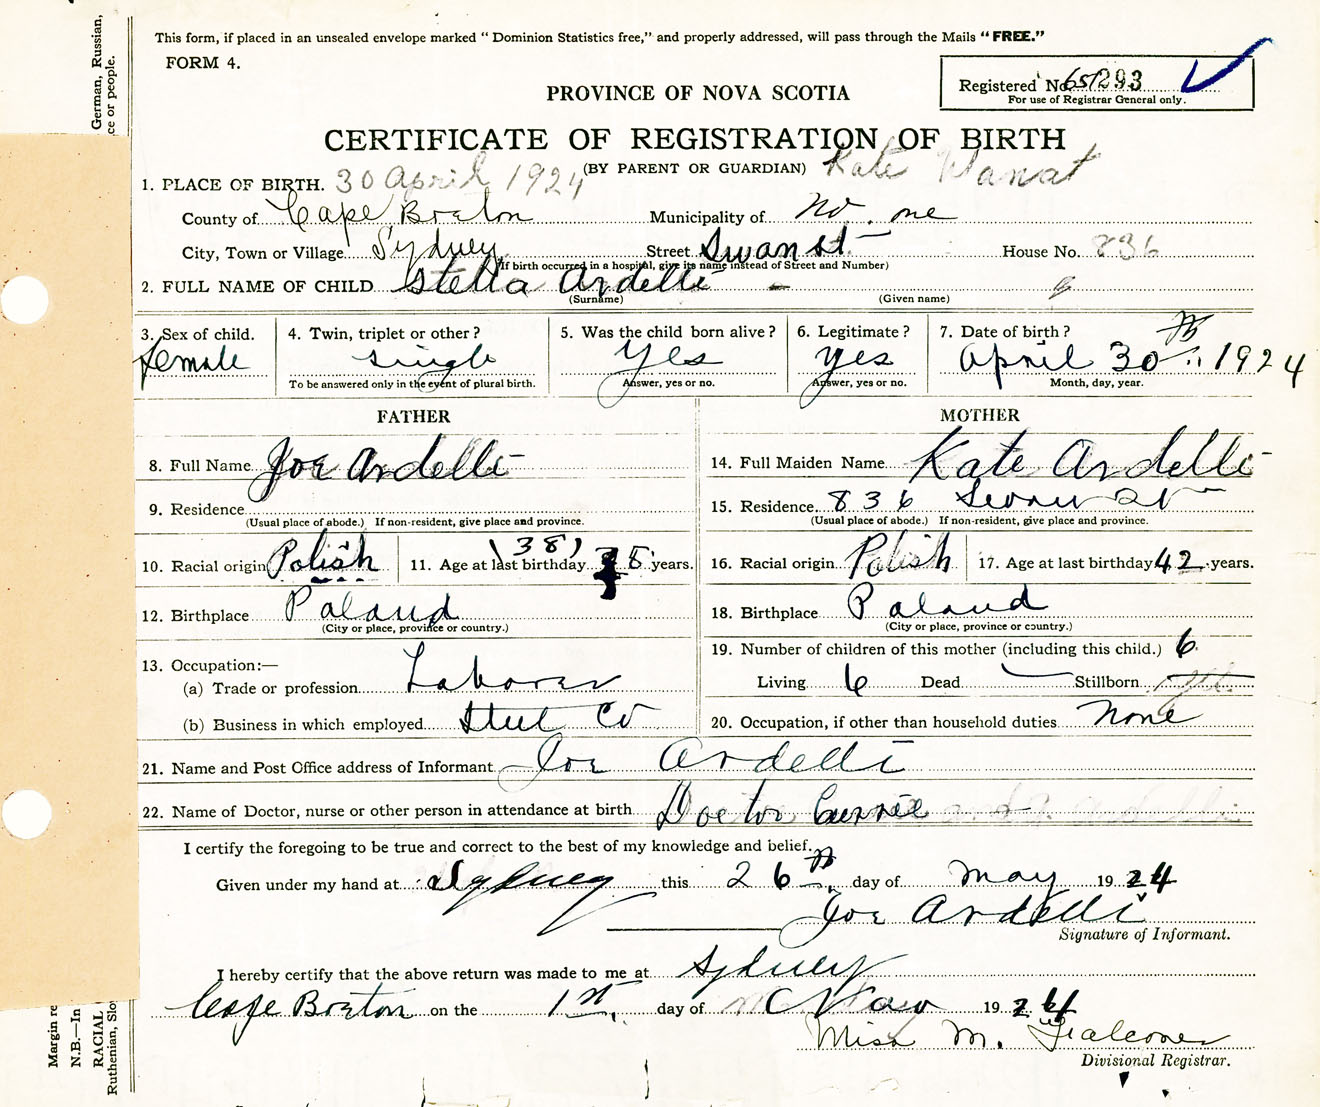 This form, if placed in an unsealed envelope marked "Dominion Statistics free," and properly addressed, will pass through the Mails "FREE."
FORM 4.
Registered No. 65293
For use of Registrar General only.
PROVINCE OF NOVA SCOTIA
CERTIFICATE OF REGISTRATION OF BIRTH
(BY PARENT OR GUARDIAN) Kate Wanat
1. PLACE OF BIRTH. 30 April 1924
County of Cape Breton Municipality of No. one
City, Town or Village Sydney Street Swan st House No. 836
(If birth occurred in a hospital, give its name instead of Street and Number)
2. FULL NAME OF CHILD Stella Ardelli
(Surname) (Given name)
3. Sex of child. 4. Twin, triplet or other? 5. Was the child born alive? 6. Legitimate? 7. Date of birth?
Female single yes yes April 30th 1924
To be answered only in the event of plural birth. Answer, yes or no. Answer, yes or no. Month, day, year.
FATHER MOTHER
8. Full Name Joe Ardelli
9. Residence
(Usual place of abode.) If non-resident, give place and province.
10. Racial origin Polish 11. Age at last birthday (38) 38 years.
12. Birthplace Poland
(City or place, province or country.)
13. Occupation:—
(a) Trade or profession Laborer
(b) Business in which employed Steel Co
14. Full Maiden Name Kate Ardelli
15. Residence 836 Swan St
(Usual place of abode.) If non-resident, give place and province.
16. Racial origin Polish 17. Age at last birthday 42 years.
18. Birthplace Poland
(City or place, province or country.)
19. Number of children of this mother (including this child.) 6
Living 6 Dead — Stillborn
20. Occupation, if other than household duties None
21. Name and Post Office address of Informant Joe Ardelli
22. Name of Doctor, nurse or other person in attendance at birth Doctor Currie
I certify the foregoing to be true and correct to the best of my knowledge and belief.
Given under my hand at Sydney this 26th day of May 1924
Joe Ardelli
Signature of Informant.
I hereby certify that the above return was made to me at Sydney
Cape Breton on the 1st day of 1924
Miss M. Falconer
Divisional Registrar.
German, Russian,
ce or people.
Margin re
N.B.—In
RACIAL
Ruthenian, Slo